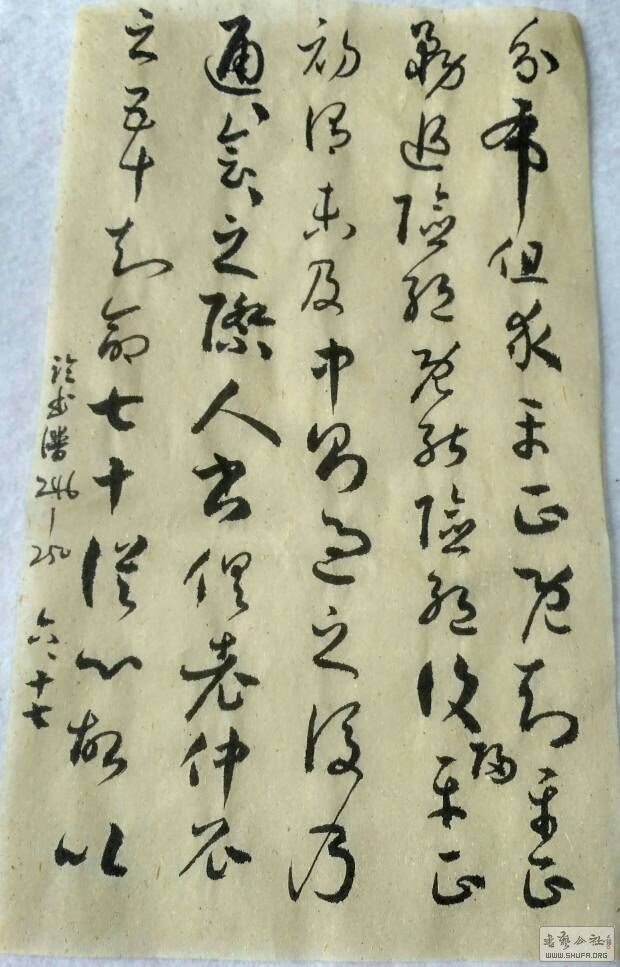 分布但求平正既知平正
務追險絕既能險絕復歸平正
初謂未及中則過之後乃
通〻會〻之際人書俱老仲尼
云五十知命七十從心故以
書譜246—250 六、十七
书艺公社
WWW.SHUFA.ORG